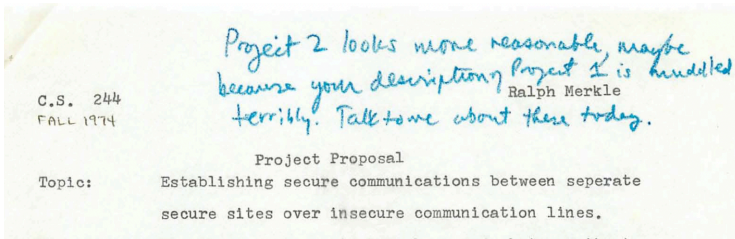 Project 2 looks more reasonable, maybe
because your description of Project 1 is muddled
terribly. Talk to me about these today.
Ralph Merkle
C.S. 244
FALL 1974
Project Proposal
Topic: Establishing secure communications between seperate
secure sites over insecure communication lines.